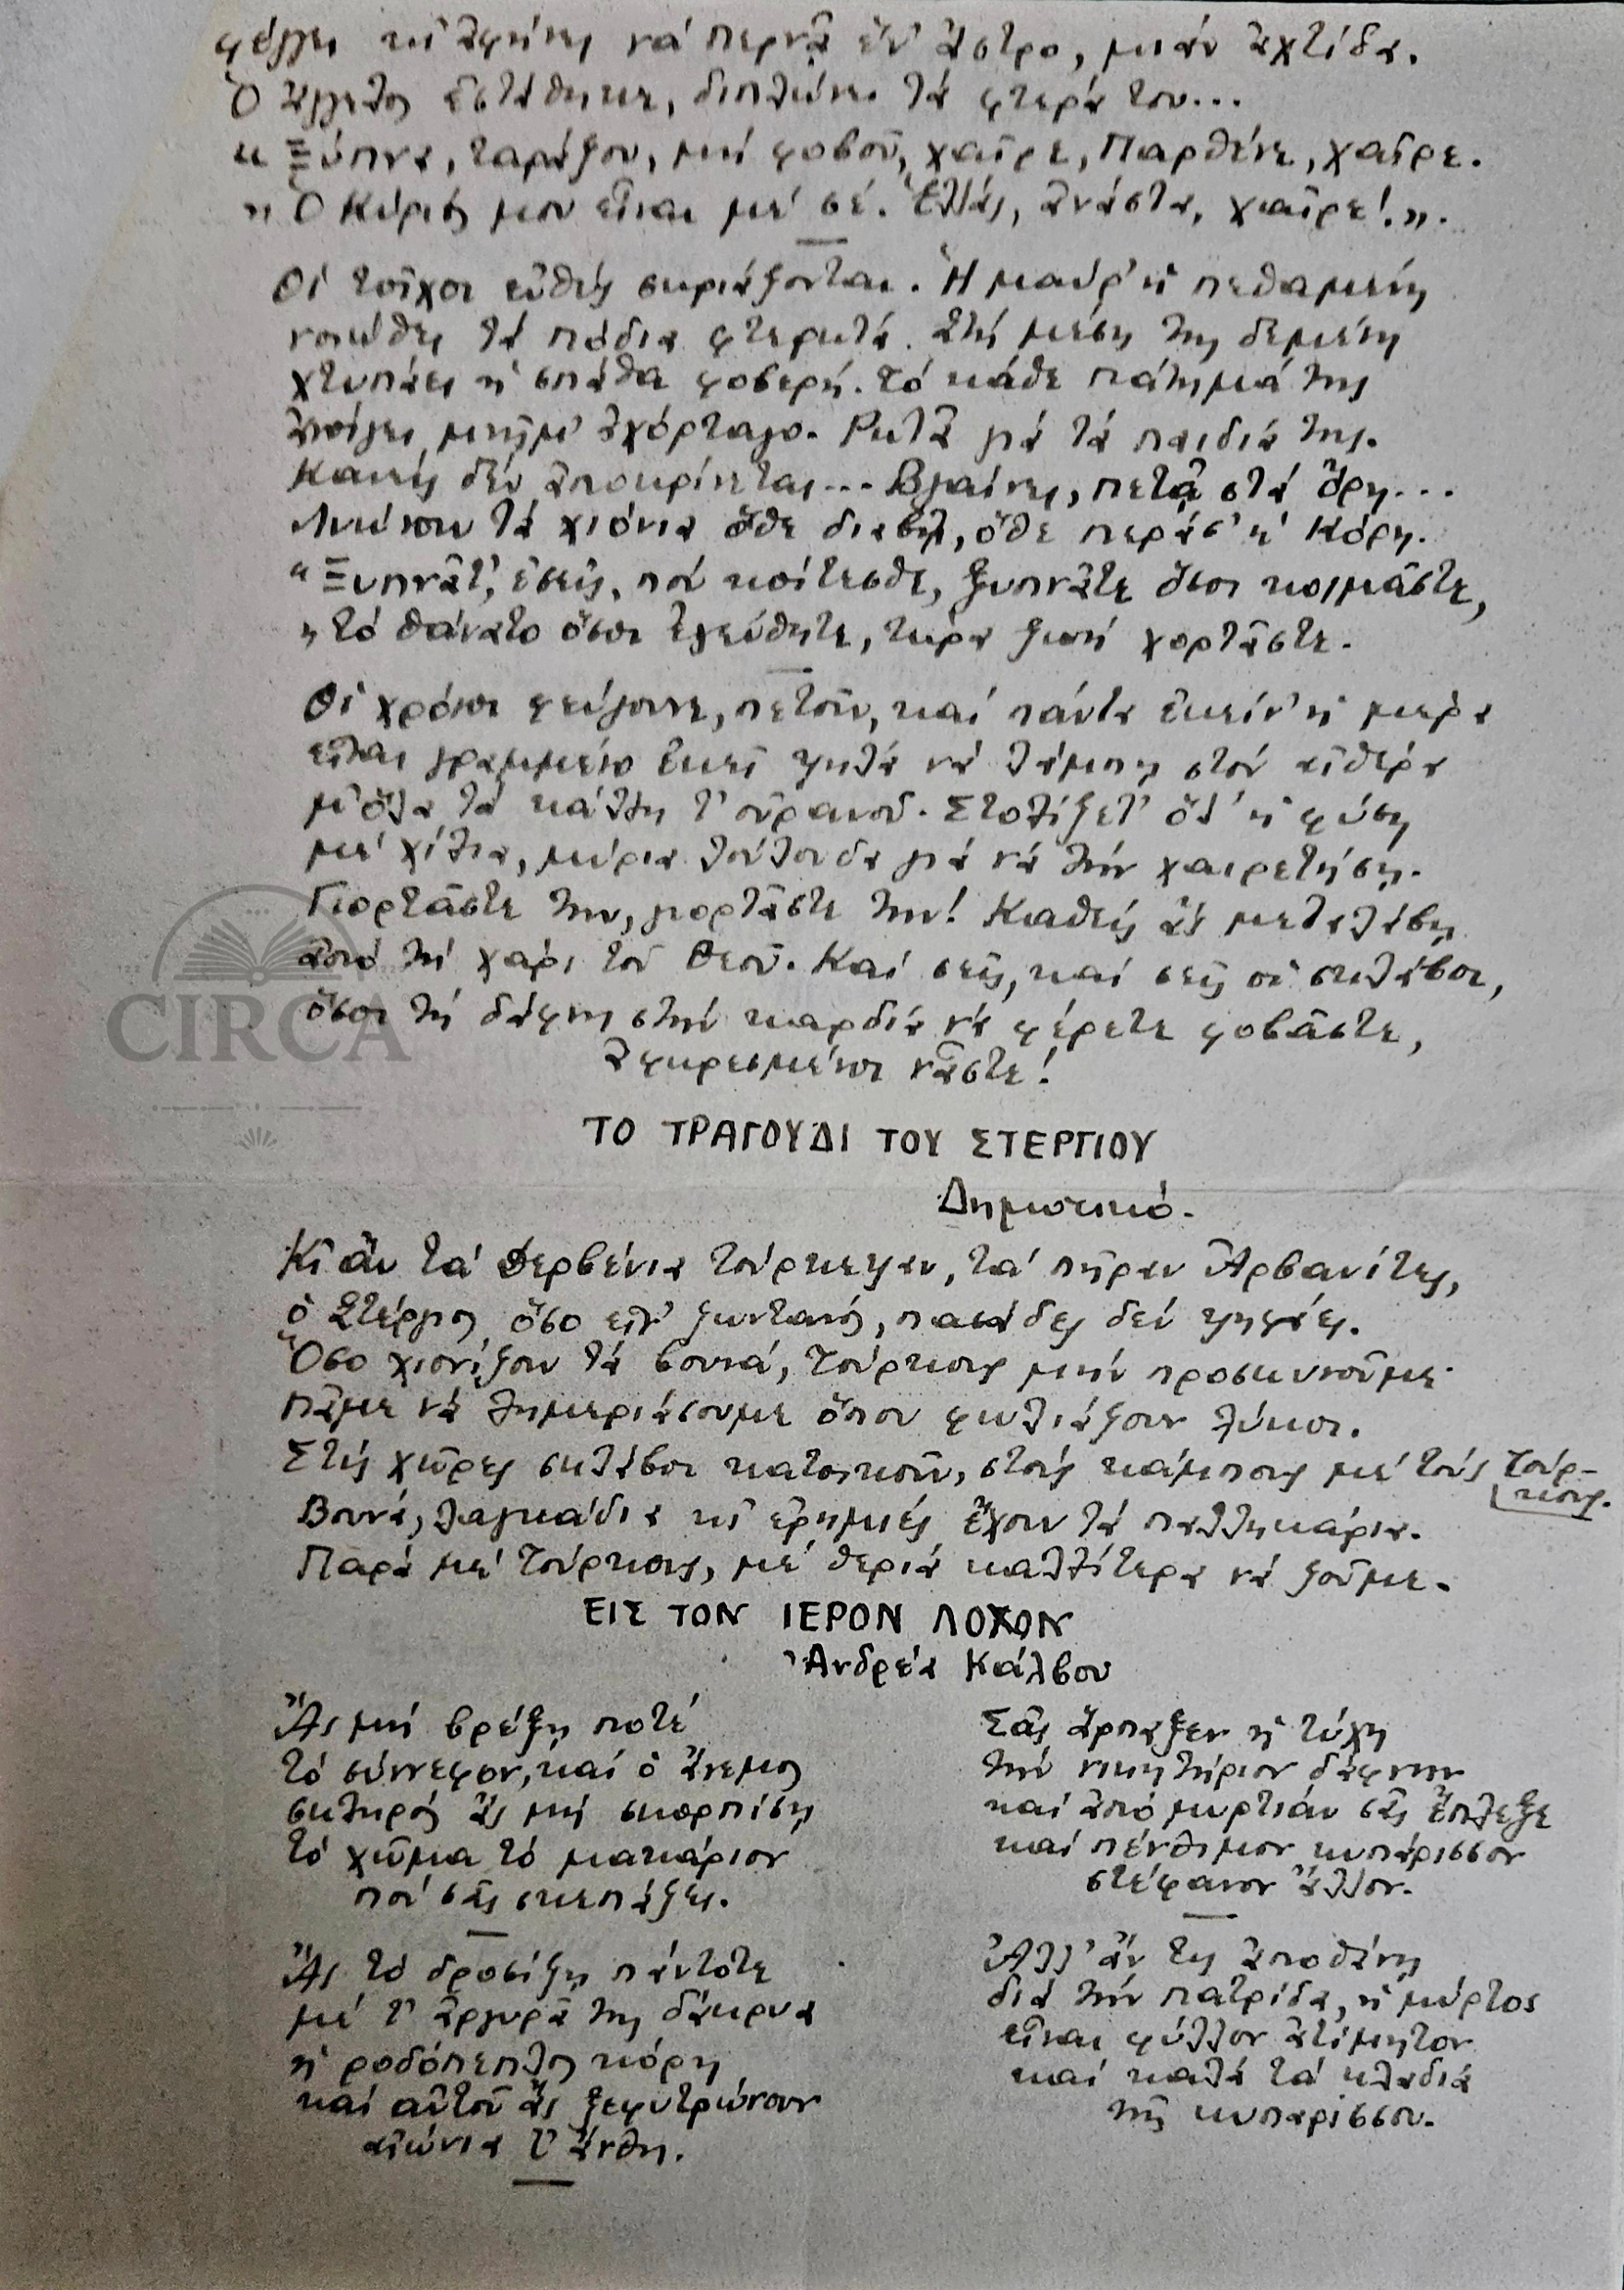 φέγγει κι' ἀφήνει νά περνᾶ ἕν' ἄστρο, μιάν ἀχτίδα.
Ὁ Ἄγγελος ἐστάθηκε, διπλώνει τά φτερά του...
« Ξύπνα, ταράξου, μή φοβοῦ, χαῖρε, Παρθένε, χαῖρε.
» Ὁ Κύριός μου εἶναι μέ σέ. Ἑλλάς, ἀνάστα, χαῖρε!».
Οἱ τοῖχοι εὐθύς σωριάζονται. Ἡ μαύρ' ἡ πεθαμένη
νοιώθει τά πόδια φτερωτά. Στή μέση της δεμένη
χτυπάει ἡ σπάθα φοβερή. Τό κάθε πάτημά της
ἀνοίγει μνῆμ' ἀχόρταγο. Ρωτᾶ γιά τά παιδιά της.
Κανείς δέν ἀποκρίνεται... Βγαίνει, πετᾶ στά ὄρη...
Λυώνουν τά χιόνια ὅθε διαβῆ, ὅθε περάσ' ἡ Κόρη.
“ Ξυπνᾶτ', ἐσεῖς, πού κοίτεσθε, ξυπνᾶτε ὅσοι κοιμᾶστε,
» τό θάνατο ὅσοι ἐγεύθητε, τώρα ζωή χορτᾶστε.
Οἱ χρόνοι φεύγουνε, πετοῦν, καί πάντα ἐκείν' ἡ μέρα
εἶναι γραμμένο ἐκεῖ ψηλά νά λάμπη στόν αἰθέρα
μ' ὅλα τά κάλλη τ' οὐρανοῦ. Στολίζετ' ὅλ' ἡ φύση
μέ χίλια, μύρια λούλουδα γιά νά τήν χαιρετήση.
Γιορτᾶστε την, γιορτᾶστε την! Καθείς ἄς μεταλάβη
ἀπό τή χάρι τοῦ Θεοῦ. Καί σεῖς, καί σεῖς οἱ σκλάβοι,
ὅσοι τή δάφνη στήν καρδιά νά φέρετε φοβᾶστε,
ἀφωρεσμένοι νᾶστε!
ΤΟ ΤΡΑΓΟΥΔΙ ΤΟΥ ΣΤΕΡΓΙΟΥ
Δημοτικό.
Κι ἄν τά Δερβένια τούρκεψαν, τά πῆραν Ἀρβανίτες,
ὁ Στέργιος, ὅσο εἶν' ζωντανός, πασάδες δέν ψηφάει.
Ὅσο χιονίζουν τά βουνά, Τούρκους μήν προσκυνοῦμε·
πᾶμε νά λημεριάσουμε ὅπου φωλιάζουν λύκοι.
Στίς χῶρες σκλάβοι κατοικοῦν, στούς κάμπους μέ τούς Τούρ-
κους.
Βουνά, λαγκάδια κι ἐρημιές ἔχουν τά παλληκάρια.
Παρά μέ Τούρκους, μέ θεριά καλλίτερα νά ζοῦμε.
ΕΙΣ ΤΟΝ ΙΕΡΟΝ ΛΟΧΟΝ
Ἀνδρέα Κάλβου
Ἄς μή βρέξη ποτέ
τό σύννεφον, καί ὁ ἄνεμος
σκληρός ἄς μή σκορπίση
τό χῶμα τό μακάριον
πού σᾶς σκεπάζει.
Ἄς τό δροσίζη πάντοτε
μέ τ' ἀργυρᾶ της δάκρυα
ἡ ροδόπεπλος κόρη
καί αὐτοῦ ἄς ξεφυτρώνουν
αἰώνια τ' ἄνθη.
Σᾶς ἅρπαξεν ἡ τύχη
τήν νικητήριον δάφνην
καί ἀπό μυρτιάν σᾶς ἔπλεξε
καί πένθιμον κυπάρισσον
στέφανον ἄλλον.
Ἀλλ' ἄν τις ἀποθάνη
διά τήν πατρίδα, ἡ μύρτος
εἶναι φύλλον ἀτίμητον
καί καλά τά κλαδιά
τῆς κυπαρίσσου.
CIRCA